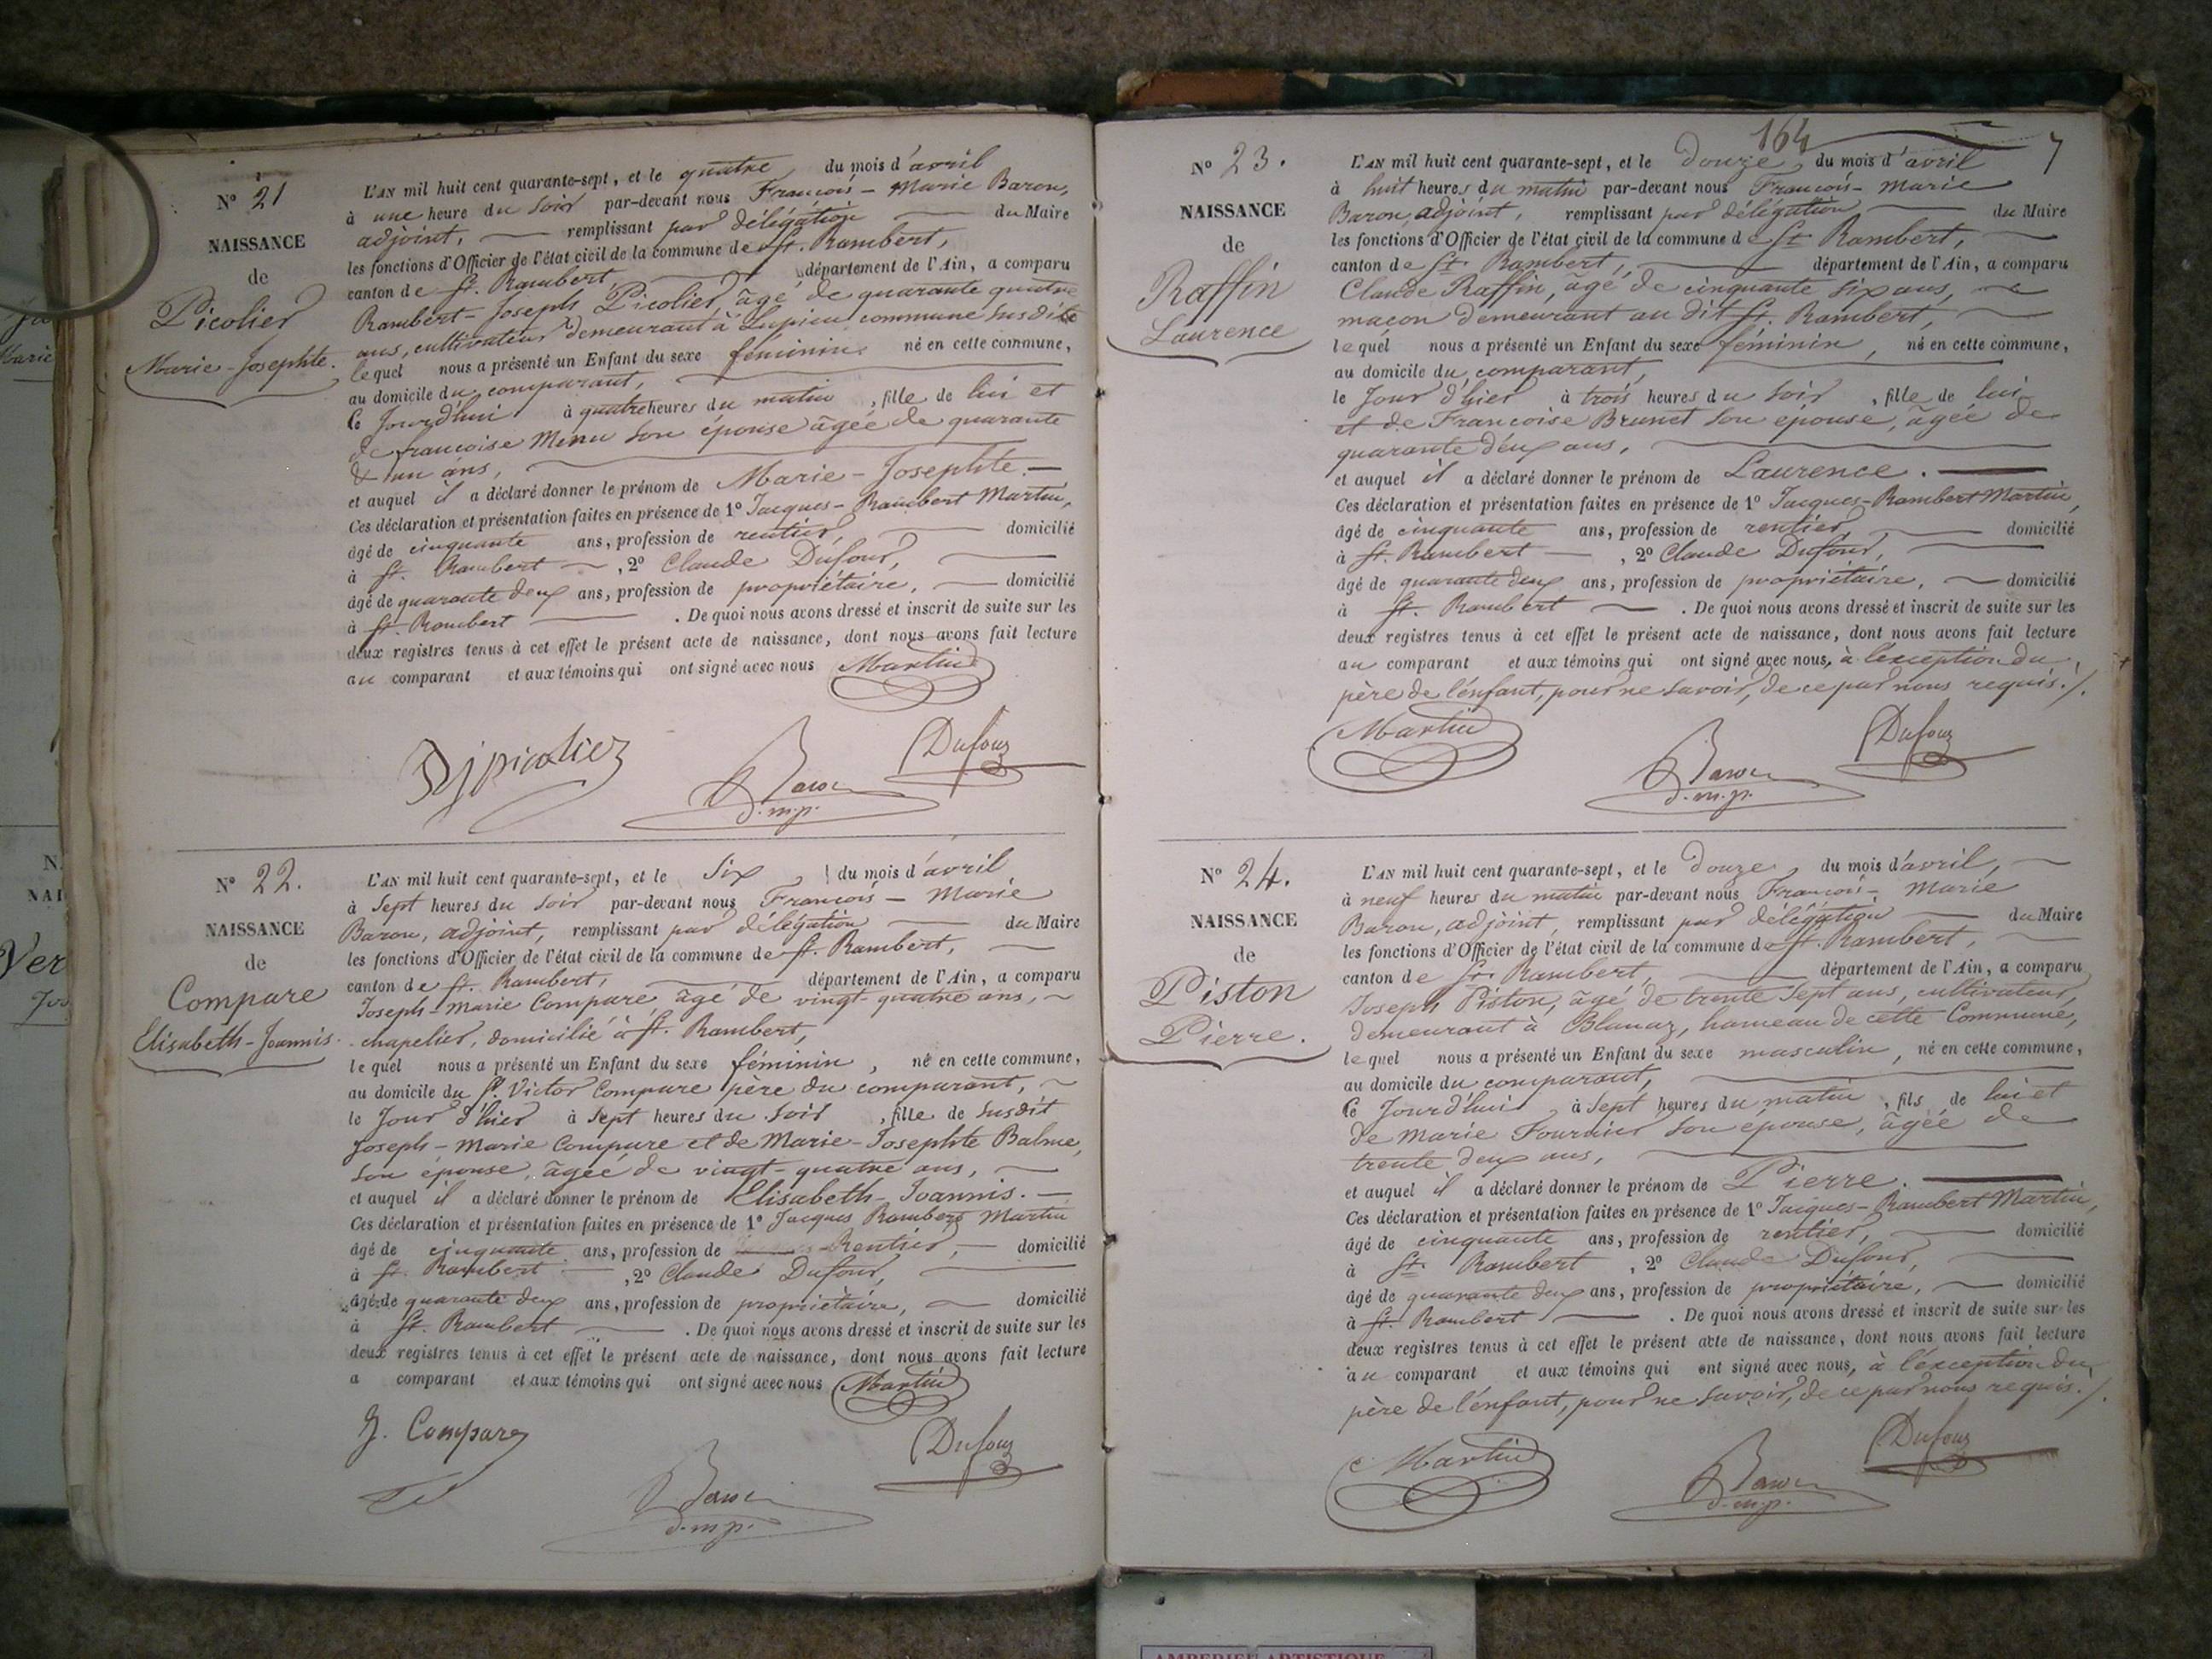 N° 21
NAISSANCE
de
Picolier
Marie-Josephte.
L'AN mil huit cent quarante-sept, et le quatre du mois d'avril
à une heure du soir par-devant nous François-Marie Baron,
adjoint, remplissant par délégation du Maire
les fonctions d'Officier de l'état civil de la commune de St. Rambert,
canton de St. Rambert, département de l'Ain, a comparu
Rambert-Joseph Picolier, âgé de quarante quatre
ans, cultivateur demeurant à Lupieu commune susdite
lequel nous a présenté un Enfant du sexe féminin né en cette commune,
au domicile du comparant,
le Jourd'hui à quatre heures du matin, fille de lui et
de françoise Menu son épouse âgée de quarante
& un ans,
et auquel il a déclaré donner le prénom de Marie-Josephte.
Ces déclaration et présentation faites en présence de 1° Jacques-Rambert Martin,
âgé de cinquante ans, profession de rentier, domicilié
à St. Rambert, 2° Claude Dufour,
âgé de quarante deux ans, profession de propriétaire, domicilié
à St. Rambert. De quoi nous avons dressé et inscrit de suite sur les
deux registres tenus à cet effet le présent acte de naissance, dont nous avons fait lecture
au comparant et aux témoins qui ont signé avec nous Martin
RJ picolier Baron Dufour
d.m.p.
N° 22.
NAISSANCE
de
Compare
Elisabeth-Joannis.
L'AN mil huit cent quarante-sept, et le six du mois d'avril
à sept heures du soir par-devant nous François-Marie
Baron, adjoint, remplissant par délégation du Maire
les fonctions d'Officier de l'état civil de la commune de St. Rambert,
canton de St. Rambert, département de l'Ain, a comparu
Joseph-Marie Compare, âgé de vingt-quatre ans,
chapelier, domicilié à St. Rambert,
lequel nous a présenté un Enfant du sexe féminin, né en cette commune,
au domicile du Sr. Victor Compare père du comparant,
le Jour d'hier à sept heures du soir, fille de susdit
Joseph-Marie Compare et de Marie-Josephte Balme,
son épouse, âgée de vingt-quatre ans,
et auquel il a déclaré donner le prénom de Elisabeth-Joannis.
Ces déclaration et présentation faites en présence de 1° Jacques Rambert Martin
âgé de cinquante ans, profession de Rentier, domicilié
à St. Rambert, 2° Claude Dufour,
âgé de quarante deux ans, profession de propriétaire, domicilié
à St. Rambert. De quoi nous avons dressé et inscrit de suite sur les
deux registres tenus à cet effet le présent acte de naissance, dont nous avons fait lecture
a comparant et aux témoins qui ont signé avec nous Martin
J. Compare Dufour
Baron
d.m.p.
164 7
N° 23.
NAISSANCE
de
Raffin
Laurence
L'AN mil huit cent quarante-sept, et le douze, du mois d'avril
à huit heures du matin par-devant nous François-Marie
Baron, adjoint, remplissant par délégation du Maire
les fonctions d'Officier de l'état civil de la commune de St Rambert,
canton de St. Rambert, département de l'Ain, a comparu
Claude Raffin, âgé de cinquante six ans,
maçon demeurant au dit St. Rambert,
lequel nous a présenté un Enfant du sexe féminin, né en cette commune,
au domicile du comparant,
le Jour d'hier à trois heures du soir, fille de lui
et de Françoise Brunet son épouse, âgée de
quarante deux ans,
et auquel il a déclaré donner le prénom de Laurence.
Ces déclaration et présentation faites en présence de 1° Jacques-Rambert Martin,
âgé de cinquante ans, profession de rentier, domicilié
à St. Rambert, 2° Claude Dufour,
âgé de quarante deux ans, profession de propriétaire, domicilié
à St. Rambert. De quoi nous avons dressé et inscrit de suite sur les
deux registres tenus à cet effet le présent acte de naissance, dont nous avons fait lecture
au comparant et aux témoins qui ont signé avec nous, à l'exception du
père de l'enfant, pour ne savoir, de ce par nous requis./.
Martin Baron Dufour
d.m.p.
N° 24.
NAISSANCE
de
Piston
Pierre.
L'AN mil huit cent quarante-sept, et le douze, du mois d'avril,
à neuf heures du matin par-devant nous François-Marie
Baron, adjoint, remplissant par délégation du Maire
les fonctions d'Officier de l'état civil de la commune de St. Rambert,
canton de St. Rambert, département de l'Ain, a comparu
Joseph Piston, âgé de trente sept ans, cultivateur,
demeurant à Blanaz, hameau de cette Commune,
lequel nous a présenté un Enfant du sexe masculin, né en cette commune,
au domicile du comparant,
le Jourd'hui à sept heures du matin, fils de lui et
de Marie Fournier son épouse, âgée de
trente deux ans,
et auquel il a déclaré donner le prénom de Pierre.
Ces déclaration et présentation faites en présence de 1° Jacques-Rambert Martin,
âgé de cinquante ans, profession de rentier, domicilié
à St. Rambert, 2° Claude Dufour,
âgé de quarante deux ans, profession de propriétaire, domicilié
à St. Rambert. De quoi nous avons dressé et inscrit de suite sur les
deux registres tenus à cet effet le présent acte de naissance, dont nous avons fait lecture
au comparant et aux témoins qui ont signé avec nous, à l'exception du
père de l'enfant, pour ne savoir, de ce par nous requis./.
Martin Baron Dufour
d.m.p.
AMBERIEU ARTISTIQUE